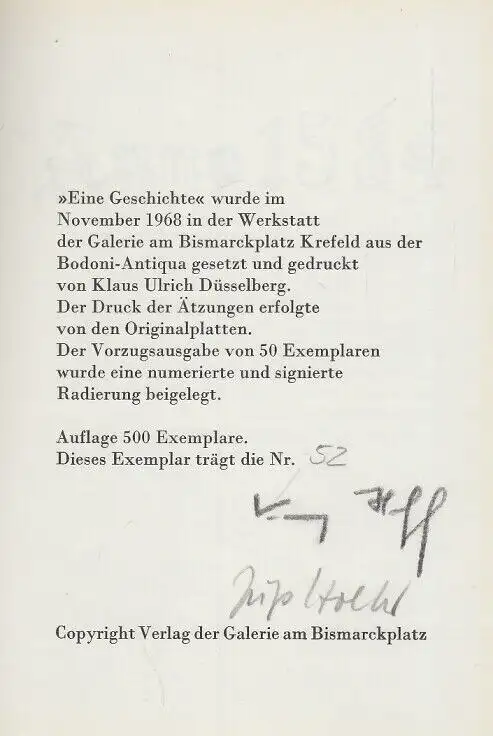 »Eine Geschichte« wurde im
November 1968 in der Werkstatt
der Galerie am Bismarckplatz Krefeld aus der
Bodoni-Antiqua gesetzt und gedruckt
von Klaus Ulrich Düsselberg.
Der Druck der Ätzungen erfolgte
von den Originalplatten.
Der Vorzugsausgabe von 50 Exemplaren
wurde eine numerierte und signierte
Radierung beigelegt.
Auflage 500 Exemplare.
Dieses Exemplar trägt die Nr. 52
Copyright Verlag der Galerie am Bismarckplatz